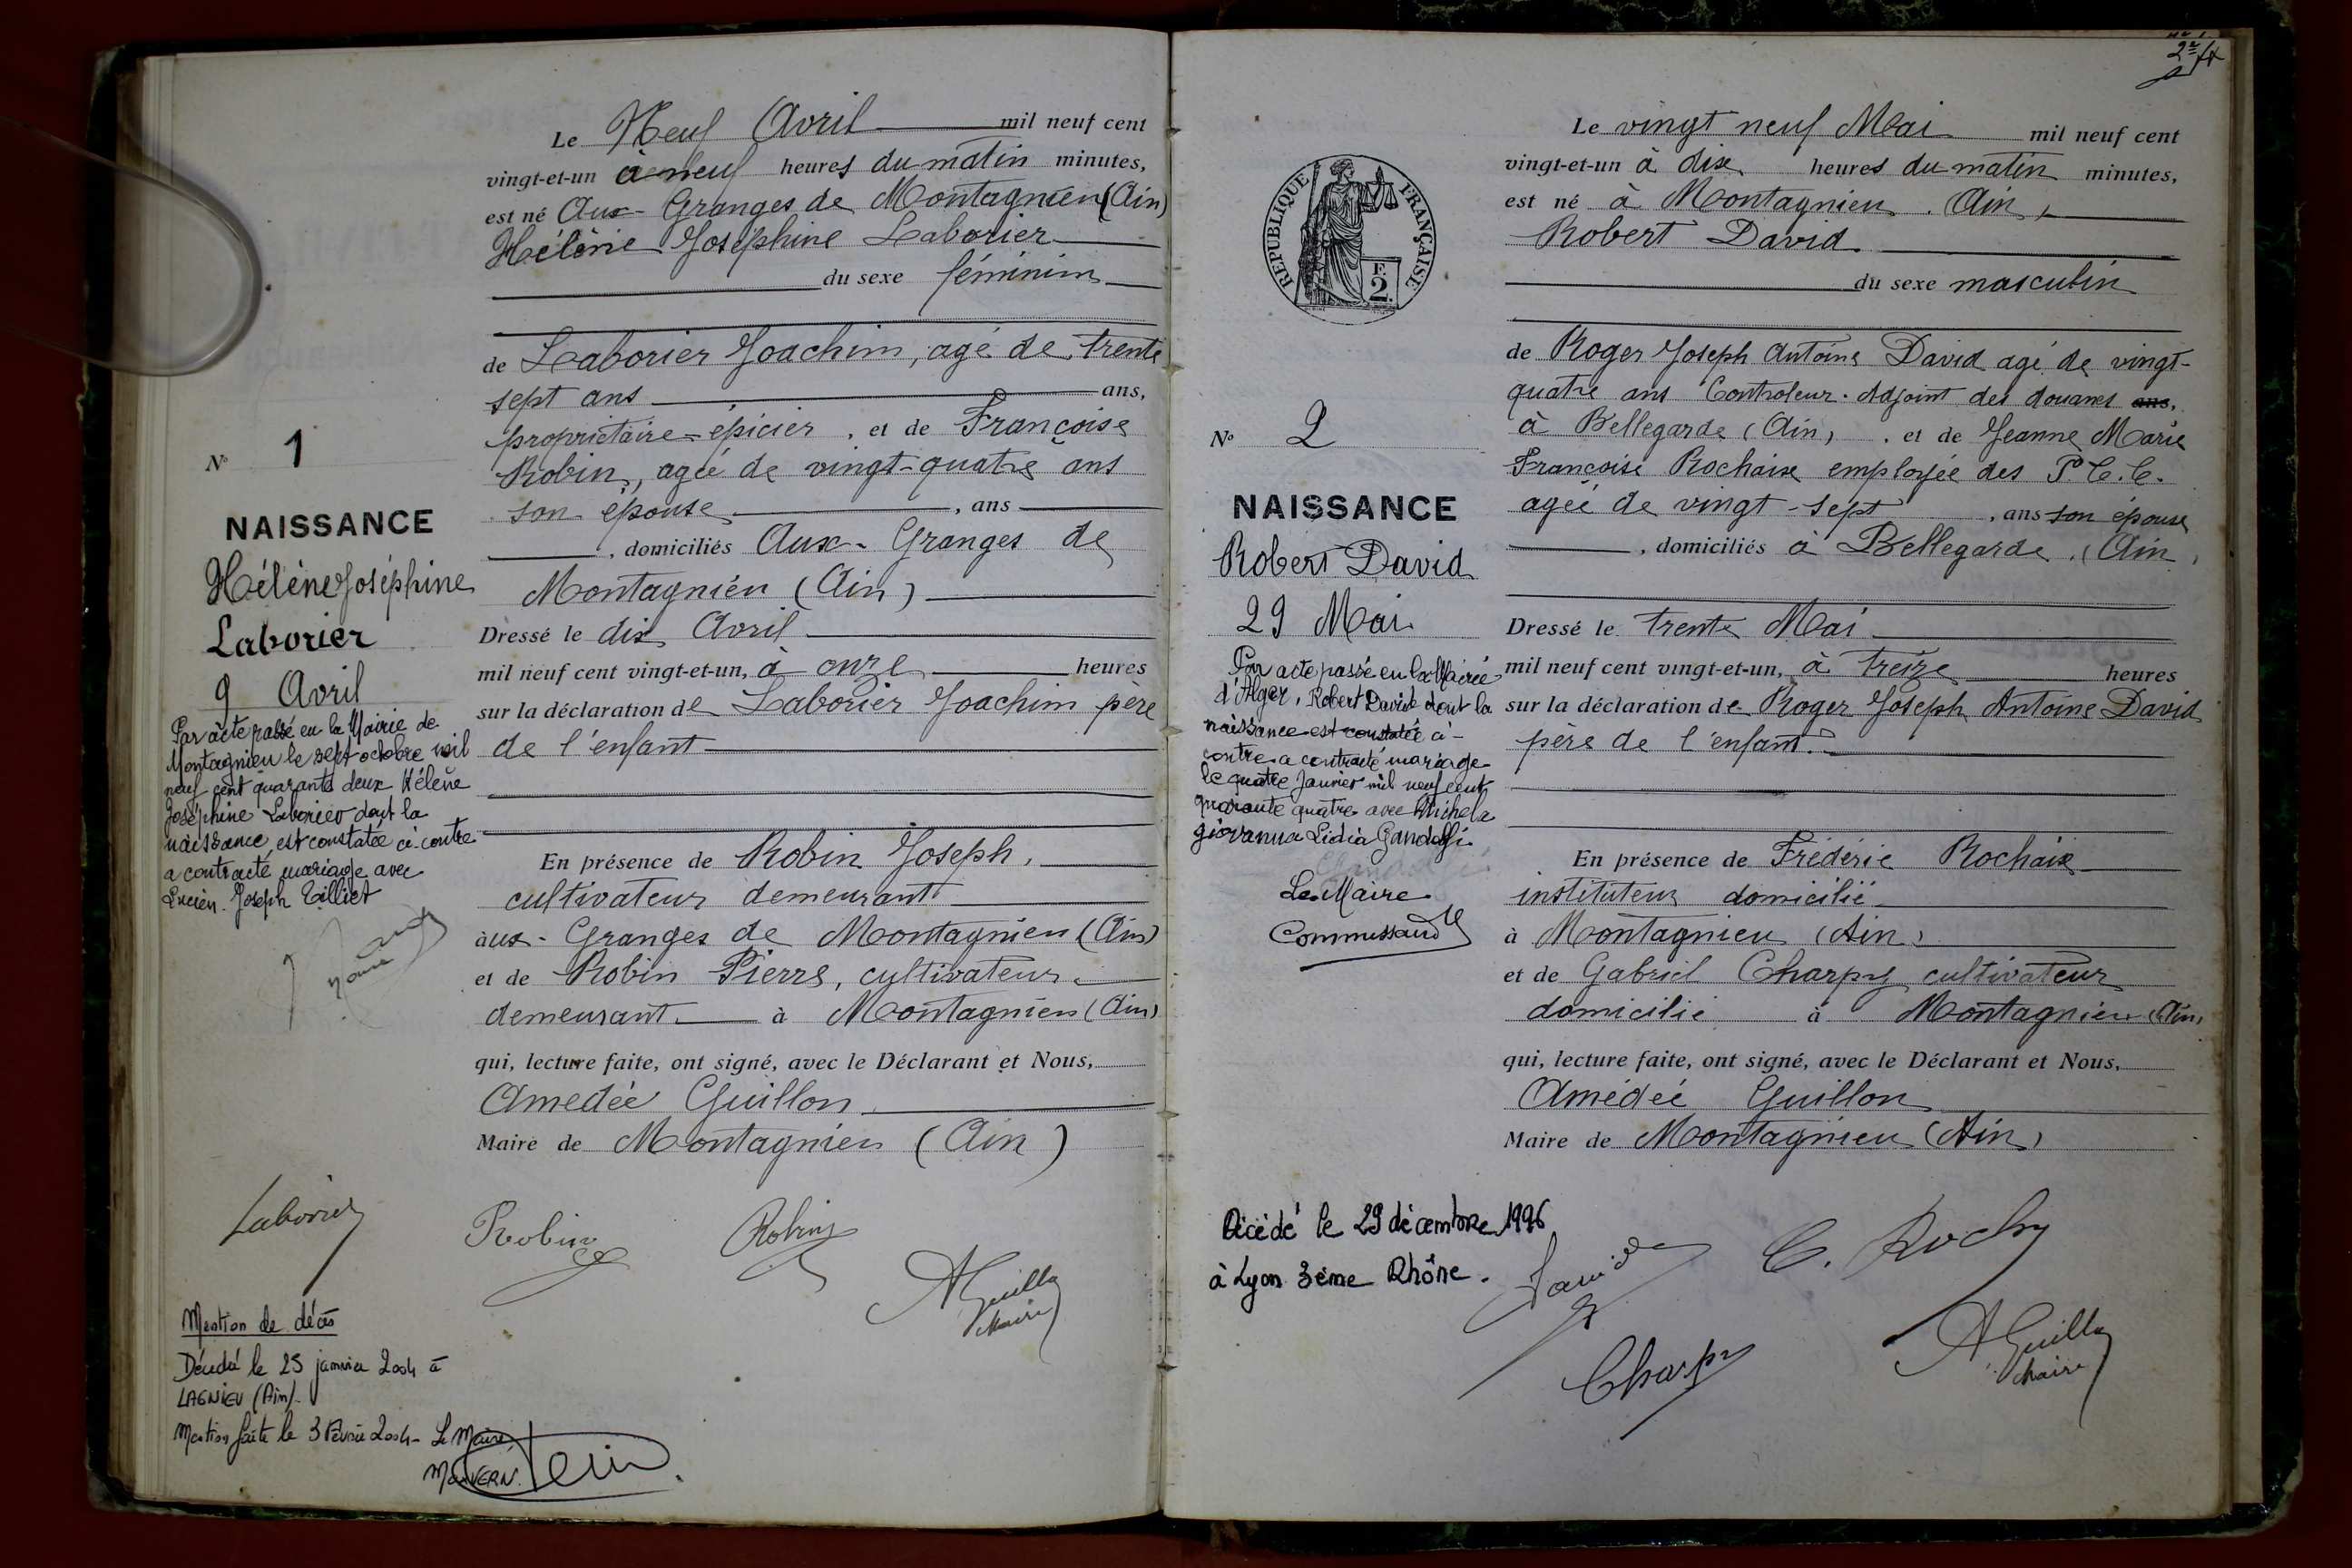 Le Neuf Avril mil neuf cent
vingt-et-un à neuf heures du matin minutes,
est né Aux-Granges de Montagnieu (Ain)
Hélène Joséphine Laborier
du sexe féminin
de Laborier Joachim, agé de trente
sept ans ans,
propriétaire-épicier, et de Françoise
Robin, agée de vingt-quatre ans
son épouse, ans
, domiciliés Aux-Granges de
Montagnieu (Ain)
Dressé le dix Avril
mil neuf cent vingt-et-un, à onze heures
sur la déclaration de Laborier Joachim père
de l'enfant
En présence de Robin Joseph,
cultivateur demeurant
aux-Granges de Montagnieu (Ain)
et de Robin Pierre, cultivateur
demeurant à Montagnieu (Ain)
qui, lecture faite, ont signé, avec le Déclarant et Nous,
Amédée Guillon
Maire de Montagnieu (Ain)
N° 1
NAISSANCE
Hélène Joséphine
Laborier
9 Avril
Par acte passé en la Mairie de
Montagnieu le sept octobre mil
neuf cent quarante deux Hélène
Joséphine Laborier dont la
naissance est constatée ci-contre
a contracté mariage avec
Lucien Joseph Tilliet
Laborier
Robin
Robin
AGuillon
Maire
Mention de décès
Décédé le 25 janvier 2004 à
LAGNIEU (Ain)
Mention faite le 3 Février 2004 - Le Maire,
2e
REPUBLIQUE FRANÇAISE
F.
2.
Le vingt neuf Mai mil neuf cent
vingt-et-un à dix heures du matin minutes,
est né à Montagnieu (Ain)
Robert David
du sexe masculin
de Roger Joseph Antoine David agé de vingt-
quatre ans Controleur-Adjoint des douanes ans,
à Bellegarde (Ain), et de Jeanne Marie
Françoise Rochaix employée des P.T.T.
agée de vingt-sept, ans son épouse
, domiciliés à Bellegarde (Ain)
Dressé le trente Mai
mil neuf cent vingt-et-un, à treize heures
sur la déclaration de Roger Joseph Antoine David
père de l'enfant.
En présence de Frédéric Rochaix
instituteur domicilié
à Montagnieu (Ain)
et de Gabriel Charpy cultivateur
domicilié à Montagnieu (Ain)
qui, lecture faite, ont signé, avec le Déclarant et Nous,
Amédée Guillon
Maire de Montagnieu (Ain)
N° 2
NAISSANCE
Robert David
29 Mai
Par acte passé en la Mairie
d'Alger, Robert David dont la
naissance est constatée ci-
contre a contracté mariage
le quatre Janvier mil neuf cent
quarante quatre avec Michela
Giovanna Lidia Gandolfi
Le Maire
Décédé le 29 décembre 1996
à Lyon 3ème Rhône.
David
Charpy
AGuillon
Maire